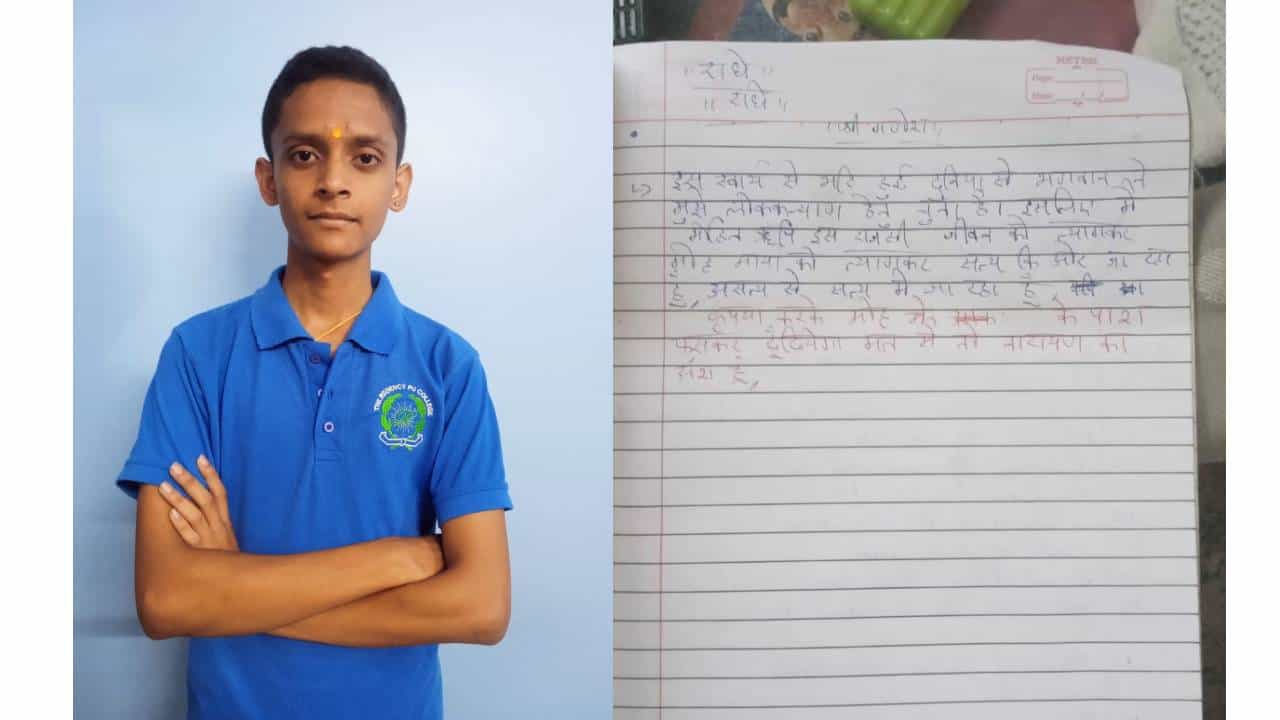 THE REGENCY PU COLLEGE
" राधे "
" राधे "
" श्री गणेश "
इस स्वार्थ से भरि हुई दुनिया से भगवान ने
मुझे लोककल्याण हेतु चुना है। इसलिए मै
मोहित ऋषि इस राजसी जीवन को त्यागकर
मोह माया को त्यागकर सत्य कि ओर जा रहा
हू, असत्य से सत्य मे जा रहा हू,
कृपया करके मोह के पाश
फसकर ढूँढियेगा मत मे तो नारायण का
अंश हू,